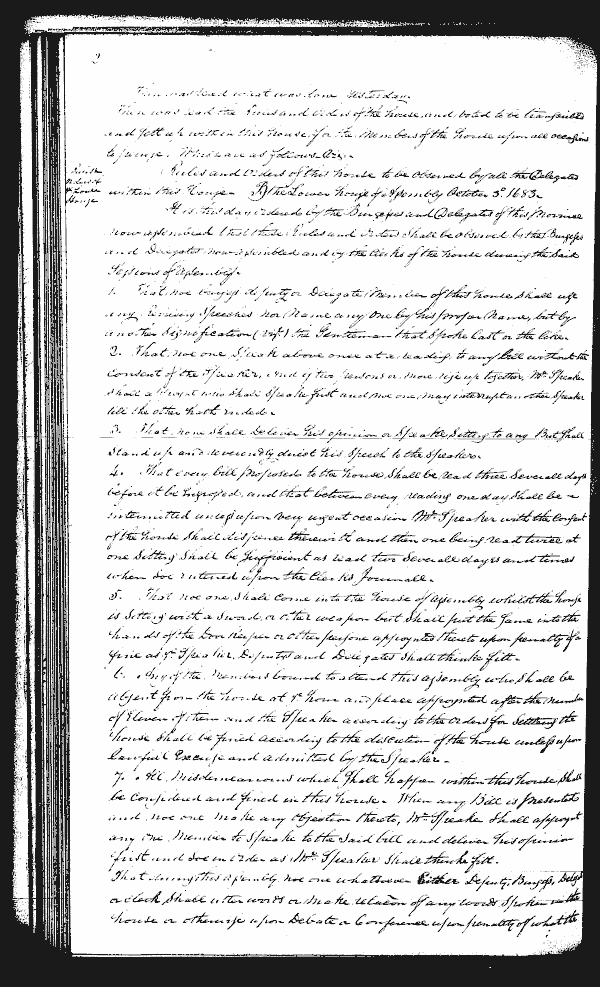 2
Then was read what was done Yesterday
Then was read the Rules and Orders of the house, and voted to be transcribed
and sett up within this house, for the Members of the house upon all occasions
to peruse. Which are as follows Viz.
Rules and Orders of this house to be observed by all the Delegates
within this House. By the Lower house of Assembly October 3d. 1683.
Rules &
Orders of
ye Lower
House
It is this day ordered by the Burgesses and Delegates of this Province
now assembled that these Rules and Orders Shall be observed by the Burgesses
and Delegates now assembled and by the Clerks of the house during the Said
Sessions of Assembly.
1. That noe Burgess deputy or Delegate Member of this house Shall use
any Reviling Speeches nor Name any one by his proper Name, but by
another Signification (vizt) the Gentleman that Spoke last or the like.
2. That noe one Speak above once at a reading to any bill without the
Consent of the Speaker, And if two persons or more rise up together, Mr Speaker
Shall appoint who Shall Speake first and noe one may interrupt another Speaker
till the other hath ended.
3. That none Shall Deliver his opinion or Speake Sitting to any But Shall
Stand up and reverendly direct his Speech to the Speaker.
4. That every bill proposed to the house Shall be read three Severall days
before it be Engrosed, and that between every reading one day Shall be
intermitted unless upon very urgent occasion Mr Speaker with the Consent
of the house Shall dispence therewith and then one being read twice at
one Sitting Shall be Sufficient as read two Severall dayes and times
when Soe entered upon the Clerks Journall.
5. That noe one Shall come into the house of Assembly whilst the house
is Sitting with a Sword, or other weapon but Shall putt the Same into the
hands of the Doorkeeper or other persons appoynted thereto upon penalty of a
fine as ye Speaker, Deputys and Delegates Shall thinke fitt.
6. Any of the Members bound to attend this Assembly who Shall be
absent from the house at ye hour and place appoynted after the number
of Eleven of them and the Speaker according to the Orders for Setting the
house Shall be fined according to the discretion of the house unless upon
lawfull Excuse and admitted by the Speaker.
7. All Misdemeanours which Shall happen within this house Shall
be Considered and fined in this house. When any Bill is presented
and noe one make any Objection thereto, Mr Speaker Shall appoynt
any one Member to Speake to the Said bill and deliver his opinion
first and Soe in Order as Mr Speaker Shall thinke fitt.
That during this Assembly noe one whatsoever Either Deputy, Burgess, Delegate
or clerk Shall utter words or make relacon of any words Spoken in the
house or otherwise upon Debate or Conference upon penalty of what the